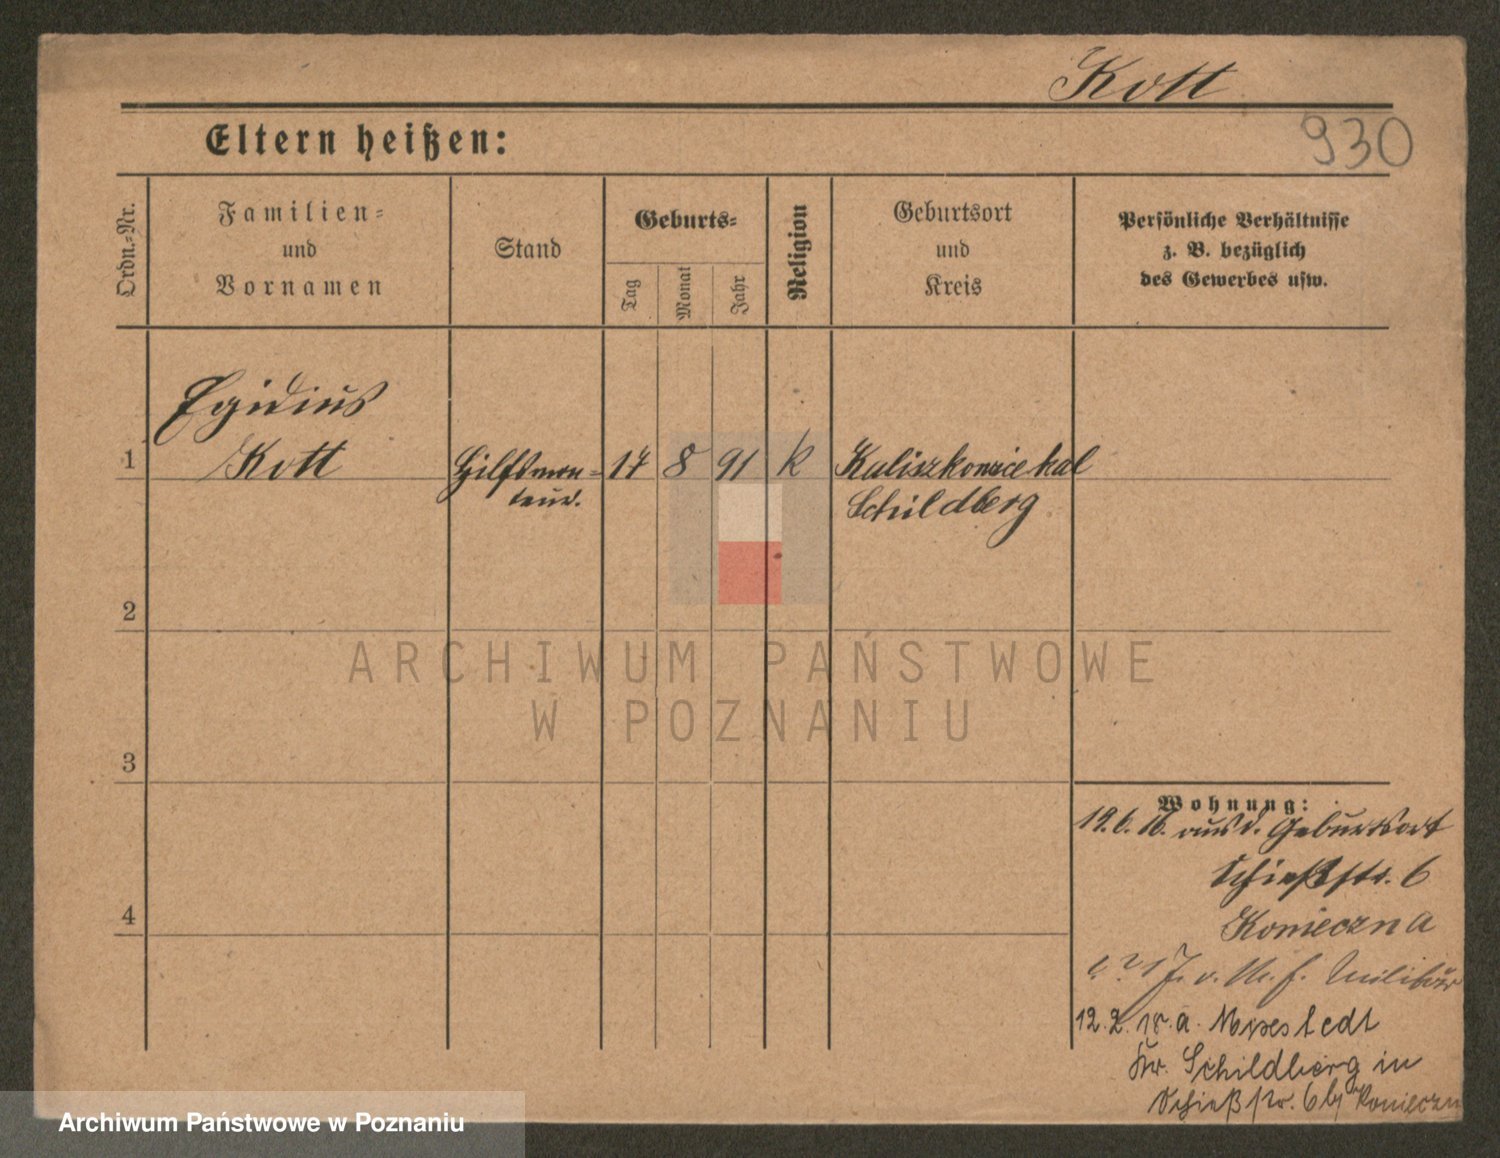 Kott
Eltern heißen:
930
Ordn.-Nr.
Familien-
und
Vornamen
Stand
Geburts-
Tag
Monat
Jahr
Religion
Geburtsort
und
Kreis
Persönliche Verhältnisse
z. B. bezüglich
des Gewerbes usw.
Egidius
1 Kott Hilfsmon- 17 8 91 k Kaliszkowice kal
teur. Schildberg
2
3
4
Wohnung:
19.6.16. aus d. Geburtsort
Schießstr. 6
Konieczna
Militär
12.2.18. a.
Kr. Schildberg in
Schießstr. 6 bj Konieczn
ARCHIWUM PAŃSTWOWE
W POZNANIU
Archiwum Państwowe w Poznaniu